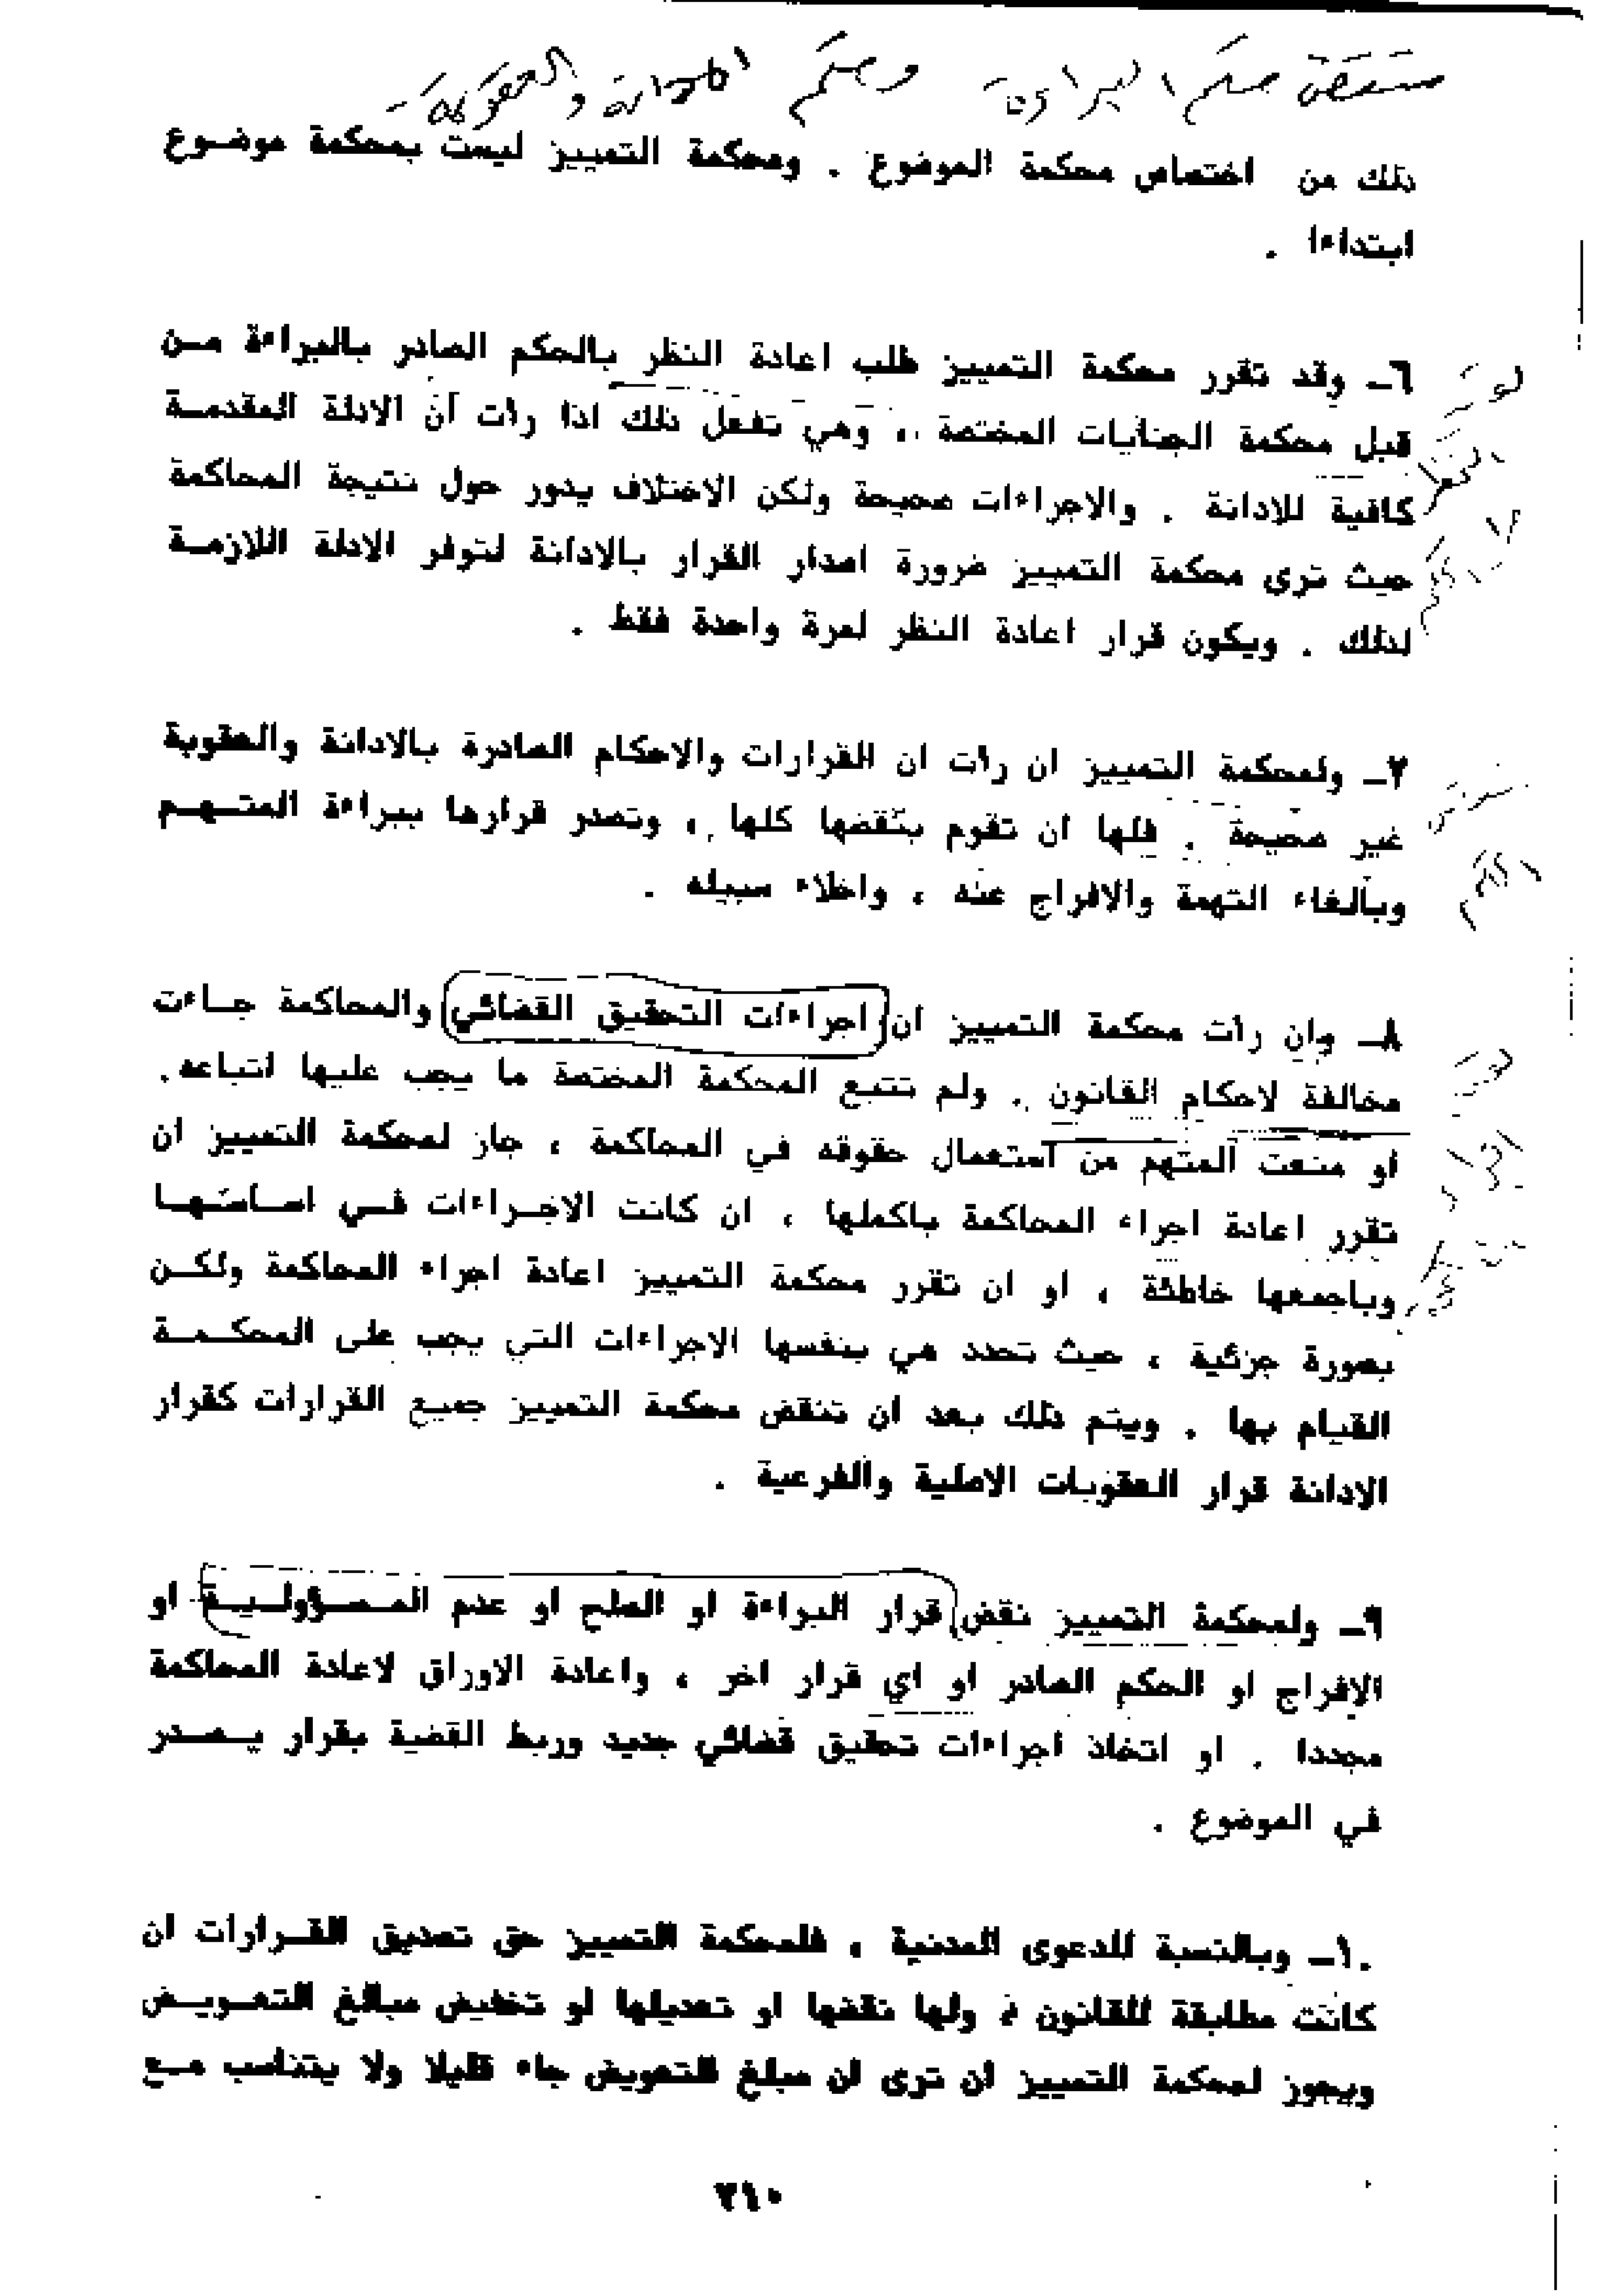 حكم البراءة وحكم الادانة والعقوبة
ذلك من اختصاص محكمة الموضوع . ومحكمة التمييز ليست بمحكمة موضـوع
ابتداءا .
٦ـ وقد تقرر محكمة التمييز طلب اعادة النظر بالحكم الصادر بالبراءة مـن
قبل محكمة الجنايات المختصة ، وهي تفعل ذلك اذا رأت أن الادلة المقدمـة
كافية للادانة . والاجراءات صحيحة ولكن الاختلاف يدور حول نتيجة المحاكمة
حيث ترى محكمة التمييز ضرورة اصدار القرار بالادانة لتوفر الادلة اللازمـة
لذلك . ويكون قرار اعادة النظر لمرة واحدة فقط .
٧ـ ولمحكمة التمييز ان رأت ان القرارات والاحكام الصادرة بالادانة والعقوبة
غير صحيحة . فلها ان تقوم بنقضها كلها ، وتصدر قرارها ببراءة المتـهـم
وبالغاء التهمة والافراج عنه ، واخلاء سبيله .
٨ـ وان رأت محكمة التمييز ان اجراءات التحقيق القضائي والمحاكمة جـاءت
مخالفة لاحكام القانون . ولم تتبع المحكمة المختصة ما يجب عليها اتباعه.
او منعت المتهم من استعمال حقوقه في المحاكمة ، جاز لمحكمة التمييز ان
تقرر اعادة اجراء المحاكمة باكملها ، ان كانت الاجـراءات فـي اسـاسـهـا
وباجمعها خاطئة ، او ان تقرر محكمة التمييز اعادة اجراء المحاكمة ولكـن
بصورة جزئية ، حيث تحدد هي بنفسها الاجراءات التي يجب على المحكـمـة
القيام بها . ويتم ذلك بعد ان تنقض محكمة التمييز جميع القرارات كقرار
الادانة قرار العقوبات الاصلية والفرعية .
٩ـ ولمحكمة التمييز نقض قرار البراءة او الصلح او عدم المـسـؤولـيـة او
الإفراج او الحكم الصادر او اي قرار اخر ، واعادة الاوراق لاعادة المحاكمة
مجددا . او اتخاذ اجراءات تحقيق قضائي جديد وربط القضية بقرار يـصـدر
في الموضوع .
١٠ـ وبالنسبة للدعوى المدنية ، فلمحكمة التمييز حق تصديق القـرارات ان
كانت مطابقة للقانون ، ولها نقضها او تعديلها او تخفيض مبالغ التعـويـض
ويجوز لمحكمة التمييز ان ترى ان مبلغ التعويض جاء قليلا ولا يتناسب مـع
٢١٠